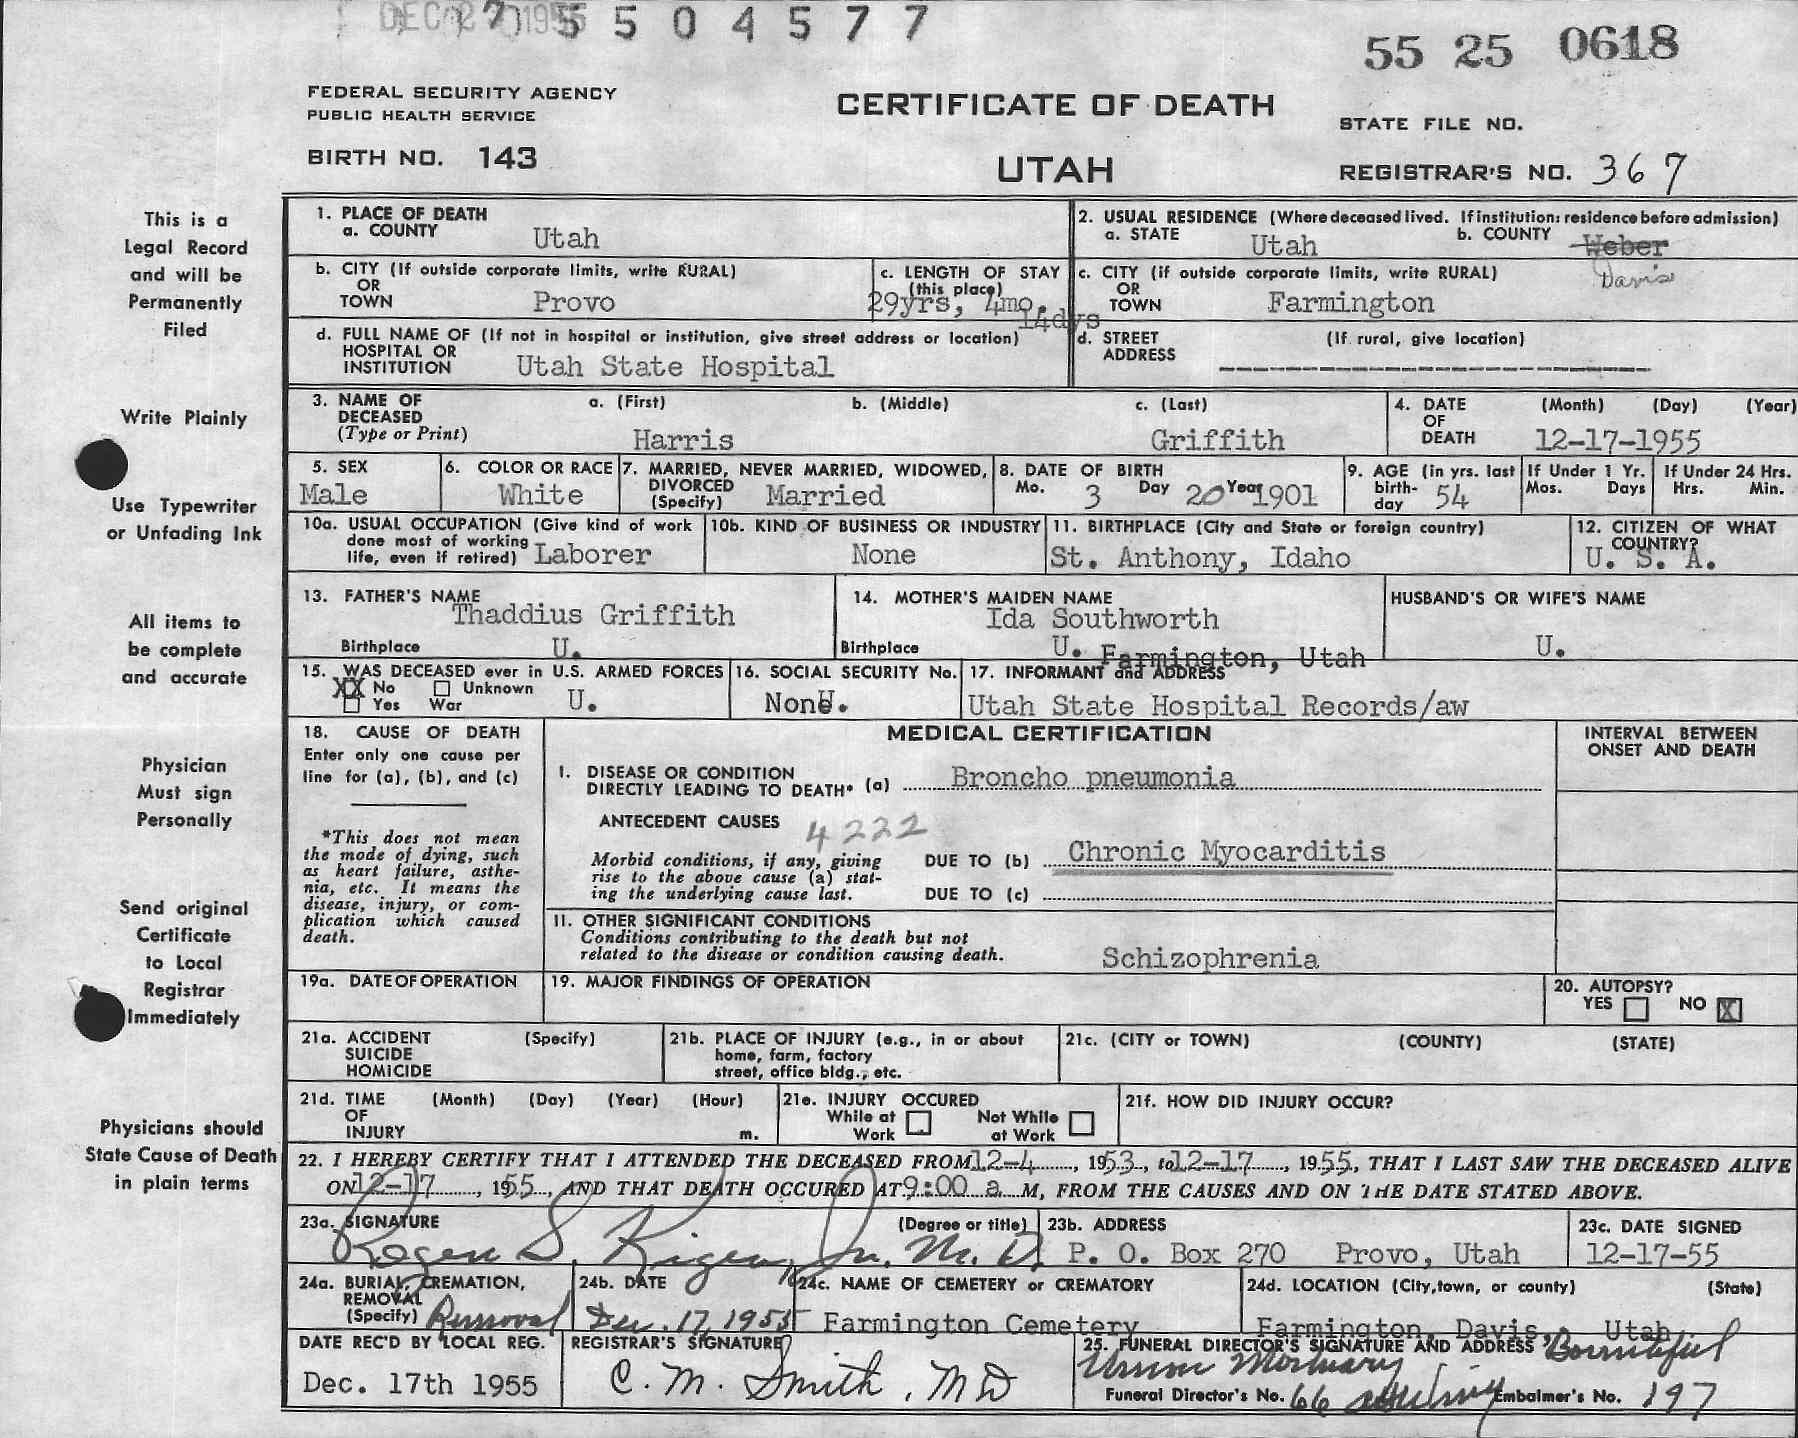 DEC 27 1955 5 5 0 4 5 7 7
55 25 0618
FEDERAL SECURITY AGENCY
PUBLIC HEALTH SERVICE
BIRTH NO. 143
CERTIFICATE OF DEATH
UTAH
STATE FILE NO.
REGISTRAR'S NO. 367
This is a
Legal Record
and will be
Permanently
Filed
Write Plainly
Use Typewriter
or Unfading Ink
All items to
be complete
and accurate
Physician
Must sign
Personally
Send original
Certificate
to Local
Registrar
Immediately
Physicians should
State Cause of Death
in plain terms
1. PLACE OF DEATH
a. COUNTY Utah
2. USUAL RESIDENCE (Where deceased lived. If institution: residence before admission)
a. STATE Utah b. COUNTY Weber
Davis
b. CITY (If outside corporate limits, write RURAL)
OR
TOWN Provo
c. LENGTH OF STAY
(this place)
29yrs, 4mo.
14dys
c. CITY (if outside corporate limits, write RURAL)
OR
TOWN Farmington
d. FULL NAME OF (If not in hospital or institution, give street address or location)
HOSPITAL OR
INSTITUTION Utah State Hospital
d. STREET (If rural, give location)
ADDRESS
3. NAME OF a. (First) b. (Middle) c. (Last)
DECEASED
(Type or Print) Harris Griffith
4. DATE (Month) (Day) (Year)
OF
DEATH 12-17-1955
5. SEX
Male
6. COLOR OR RACE
White
7. MARRIED, NEVER MARRIED, WIDOWED,
DIVORCED
(Specify) Married
8. DATE OF BIRTH
Mo. 3 Day 20 Year 1901
9. AGE (in yrs. last
birth-
day 54
If Under 1 Yr.
Mos. Days
If Under 24 Hrs.
Hrs. Min.
10a. USUAL OCCUPATION (Give kind of work
done most of working
life, even if retired) Laborer
10b. KIND OF BUSINESS OR INDUSTRY
None
11. BIRTHPLACE (City and State or foreign country)
St. Anthony, Idaho
12. CITIZEN OF WHAT
COUNTRY?
U. S. A.
13. FATHER'S NAME
Thaddius Griffith
Birthplace U.
14. MOTHER'S MAIDEN NAME
Ida Southworth
Birthplace U. Farmington, Utah
HUSBAND'S OR WIFE'S NAME
U.
15. WAS DECEASED ever in U.S. ARMED FORCES
XX No Unknown
Yes War U.
16. SOCIAL SECURITY No.
None U.
17. INFORMANT and ADDRESS
Utah State Hospital Records/aw
18. CAUSE OF DEATH
Enter only one cause per
line for (a), (b), and (c)
*This does not mean
the mode of dying, such
as heart failure, asthe-
nia, etc. It means the
disease, injury, or com-
plication which caused
death.
MEDICAL CERTIFICATION
INTERVAL BETWEEN
ONSET AND DEATH
I. DISEASE OR CONDITION
DIRECTLY LEADING TO DEATH* (a) Broncho pneumonia
ANTECEDENT CAUSES 4222
Morbid conditions, if any, giving
rise to the above cause (a) stat-
ing the underlying cause last.
DUE TO (b) Chronic Myocarditis
DUE TO (c)
II. OTHER SIGNIFICANT CONDITIONS
Conditions contributing to the death but not
related to the disease or condition causing death. Schizophrenia
19a. DATE OF OPERATION
19. MAJOR FINDINGS OF OPERATION
20. AUTOPSY?
YES NO X
21a. ACCIDENT (Specify)
SUICIDE
HOMICIDE
21b. PLACE OF INJURY (e.g., in or about
home, farm, factory
street, office bldg., etc.
21c. (CITY or TOWN) (COUNTY) (STATE)
21d. TIME (Month) (Day) (Year) (Hour)
OF
INJURY m.
21e. INJURY OCCURED
While at Not While
Work at Work
21f. HOW DID INJURY OCCUR?
22. I HEREBY CERTIFY THAT I ATTENDED THE DECEASED FROM 12-4, 1953, to 12-17, 1955, THAT I LAST SAW THE DECEASED ALIVE
ON 12-17, 1955, AND THAT DEATH OCCURED AT 9:00 a M, FROM THE CAUSES AND ON THE DATE STATED ABOVE.
23a. SIGNATURE (Degree or title)
Roger S. Jr. M. D.
23b. ADDRESS
P. O. Box 270 Provo, Utah
23c. DATE SIGNED
12-17-55
24a. BURIAL, CREMATION,
REMOVAL
(Specify) Removal
24b. DATE
Dec. 17, 1955
24c. NAME OF CEMETERY or CREMATORY
Farmington Cemetery
24d. LOCATION (City, town, or county) (State)
Farmington, Davis, Utah
DATE REC'D BY LOCAL REG.
Dec. 17th 1955
REGISTRAR'S SIGNATURE
C. M. Smith, MD
25. FUNERAL DIRECTOR'S SIGNATURE AND ADDRESS Bountiful
Union Mortuary
Funeral Director's No. 66 Embalmer's No. 197